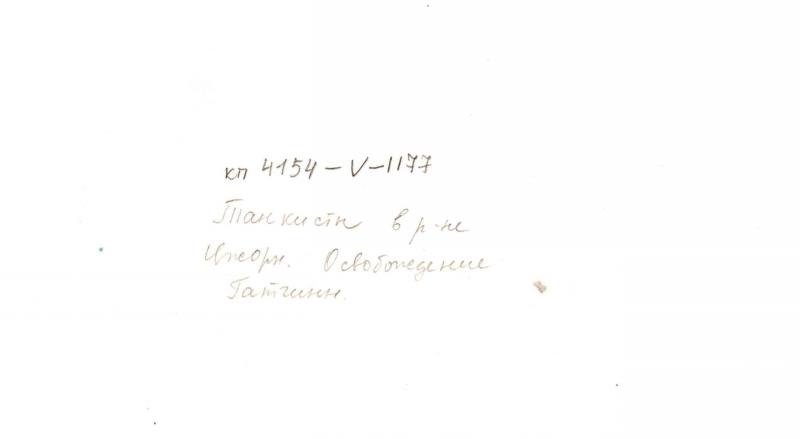 кп 4154-V-1177
Танкисты в р-не
Ижоры. Освобождение
Гатчины.